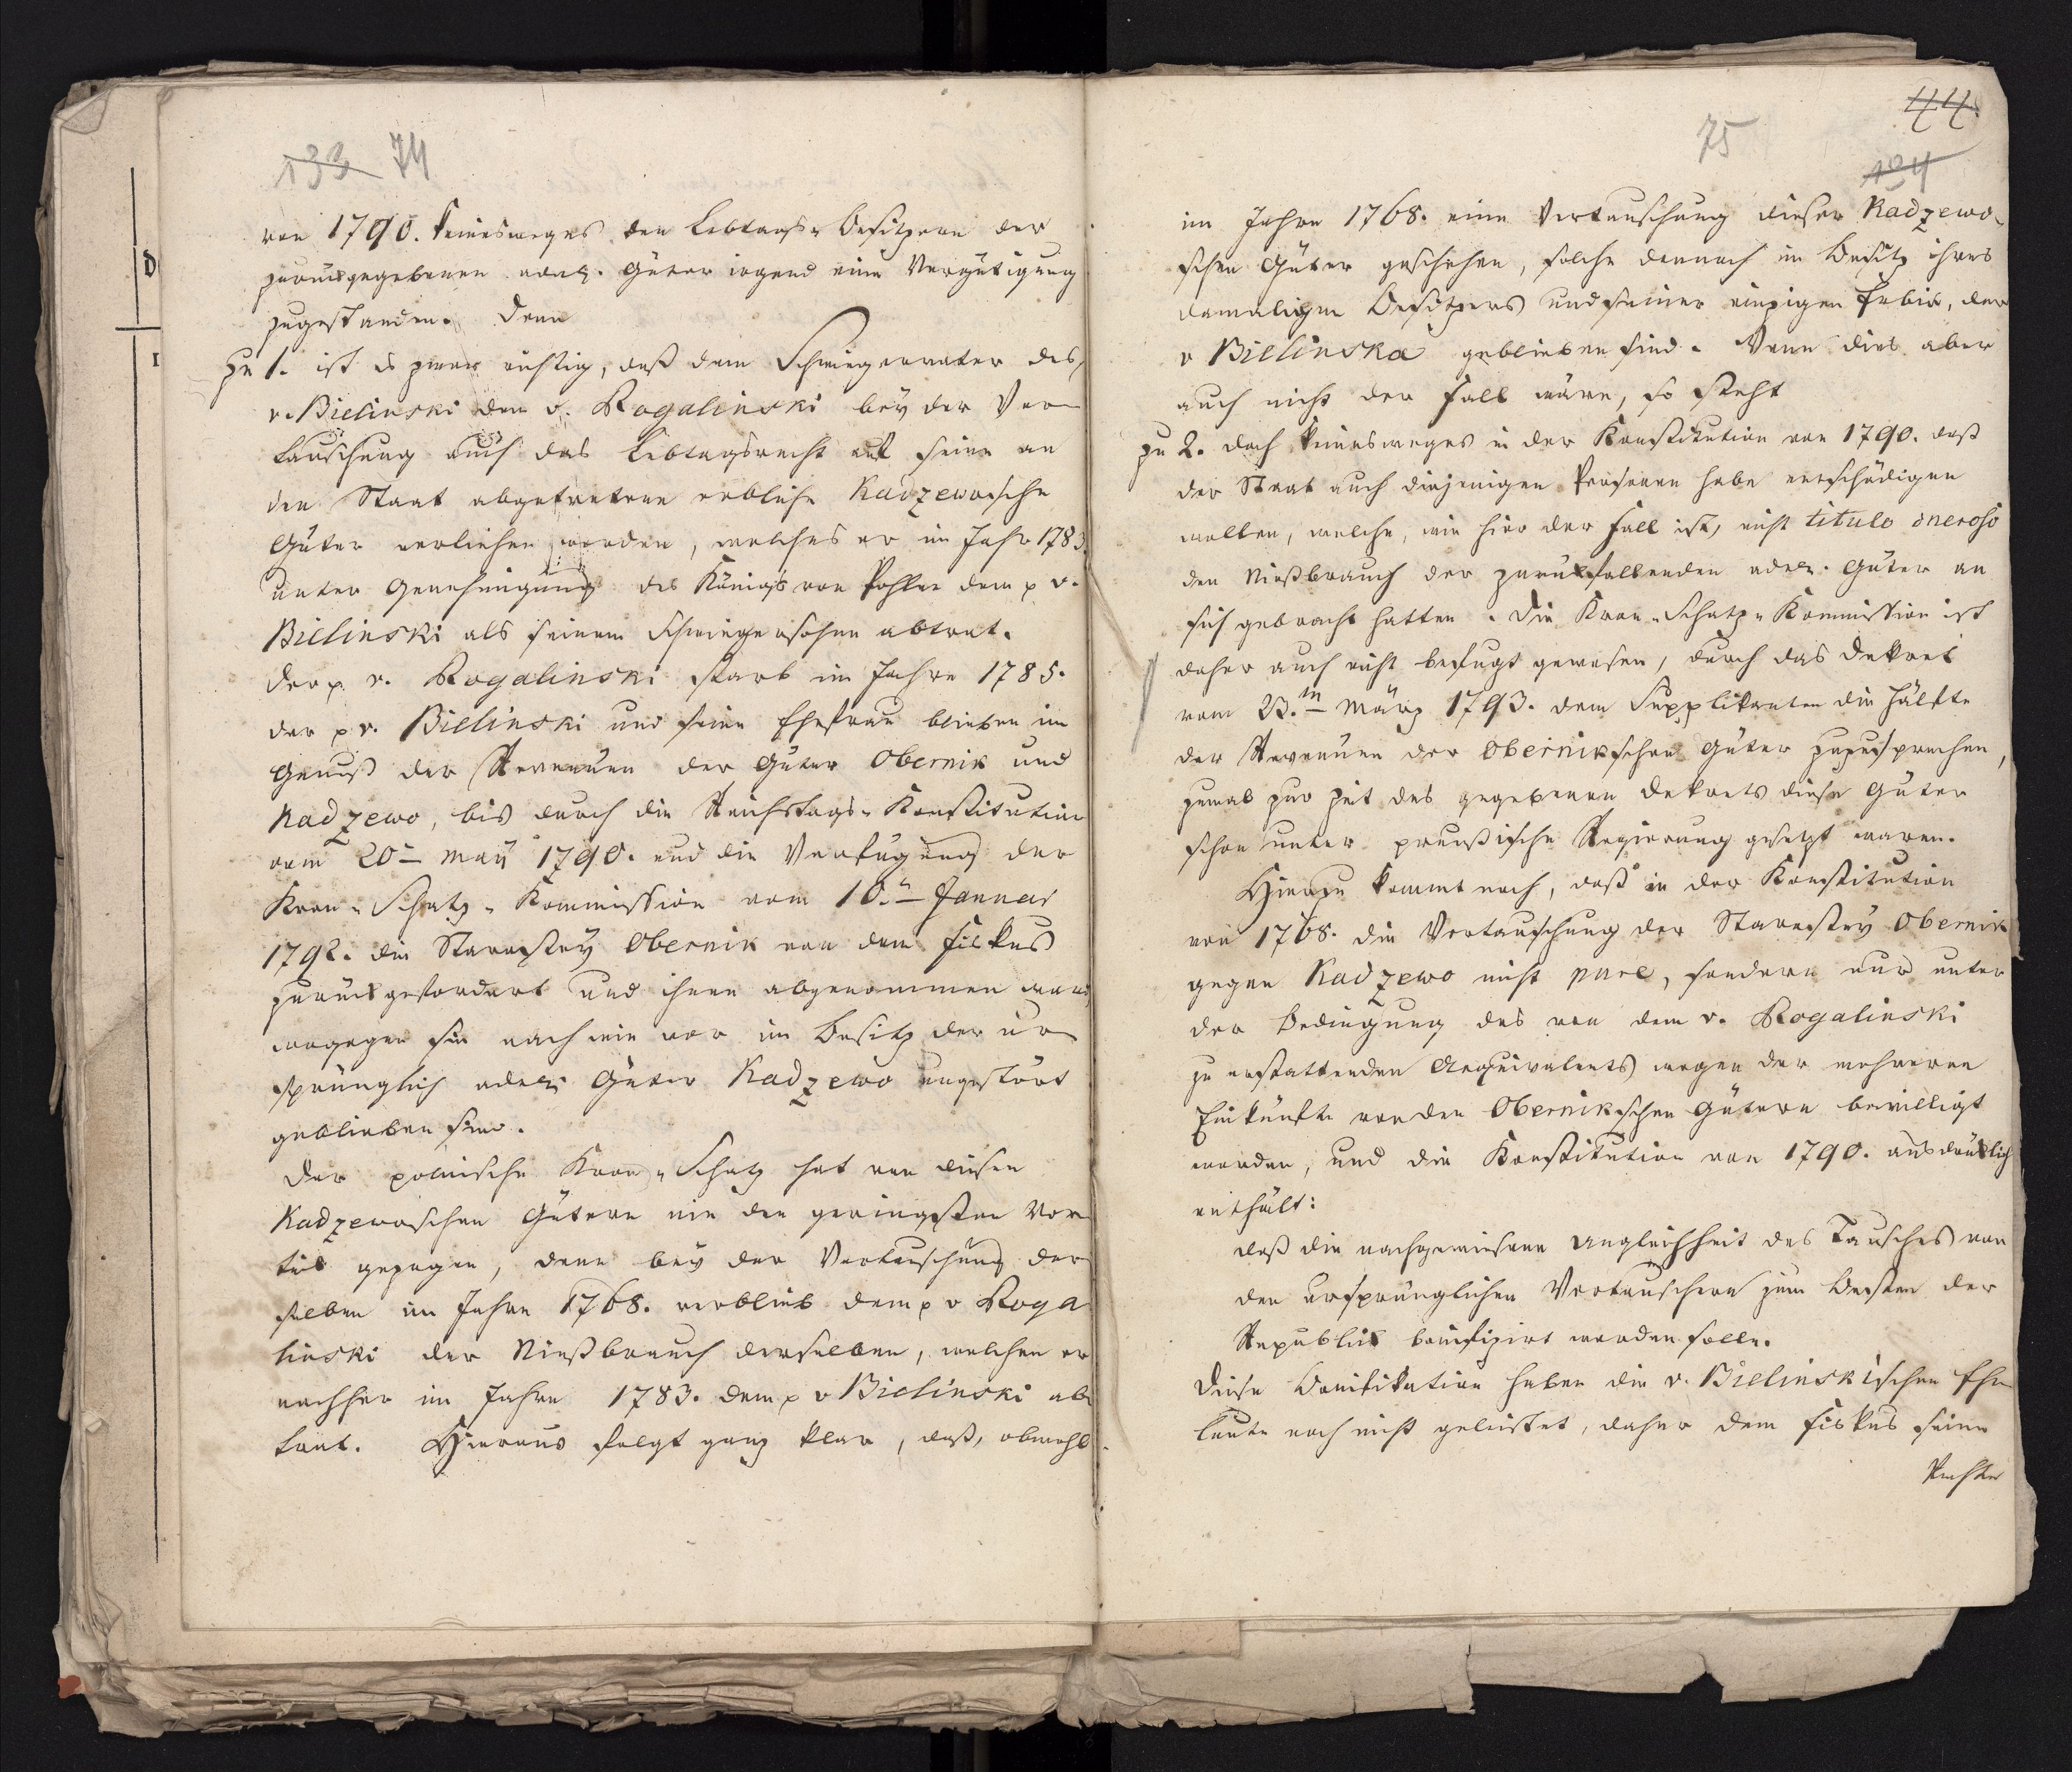 133 74
von 1790. keinesweges den Lebtags-Besitzern der
zurükgegebenen adel. Güter irgend eine Vergütigung
zugestanden. Denn
zu 1. ist es zwar richtig, daß dem Schwiegervater des
v. Bielinski dem v. Rogalinski bey der Ver
tauschung auch das Lebtagsrecht auf seine an
den Staat abgetretene erbliche Kadzewosche
Güter verliehen worden, welches er im Jahr 1783.
unter Genehmigung des Königs von Pohlen dem p v.
Bielinski als seinem Schwiegersohne abtrat.
Der p. v. Rogalinski starb im Jahre 1785.
der p v. Bielinski und seine Ehefrau blieben im
Genuß der Revenüen der Güter Obernik und
Kadzewo, bis durch die Reichstags-Konstitution
vom 20n May 1790. und die Verfügung der
Kron-Schatz-Kommission vom 10.n Januar
1792. die Starostey Obernik von dem Fiskus
zurükgefordert und ihnen abgenommen ward
wogegen sie nach wie vor im Besitz der ur
sprünglich adel. Güter Kadzewo ungestört
geblieben sind.
Der polnische Kron-Schatz hat von diesen
Kadzewoschen Gütern nie den geringsten Vor
teil gezogen, denn bey der Vertauschung der
selben im Jahre 1768. verblieb dem p v Roga
linski der Nießbrauch derselben, welchen er
nachher im Jahre 1783. dem p v Bielinski ab
trat. Hieraus folgt ganz klar, daß, obwohl
44.
75
134
im Jahre 1768. eine Vertauschung dieser Kadzewo-
schen Güter geschehen, solche dennoch im Besitz ihres
damaligen Besitzers und seiner einzigen Erbin, der
v Bielinska geblieben sind. Wenn dies aber
auch nicht der Fall wäre, so steht
zu 2. doch keinesweges in der Konstitution von 1790. daß
der Staat auch diejenigen Personen habe entschädigen
wollen, welche, wie hier der Fall ist, nicht titulo oneroso
den Nießbrauch der zurükfallenden adel. Güter an
sich gebracht hatten. Die Kron-Schatz-Kommission ist
daher auch nicht befugt gewesen, durch das Dekret
vom 23.tn März 1793. dem Supplikanten die Hälfte
der Revenüen der Obernikschen Güter zuzusprechen,
zumal zur Zeit des gegebenen Dekrets diese Güter
schon unter preußische Regierung gesetzt waren.
Hierzu kommt noch, daß in der Konstitution
von 1768. die Vertauschung der Starostey Obernik
gegen Kadzewo nicht pure, sondern nur unter
der Bedingung des von dem v. Rogalinski
zu erstattenden Aequivalents wegen der mehreren
Einkünfte von den Obernikschen Gütern bewilligt
worden, und die Konstitution von 1790. ausdrüklich
enthält:
daß die nachgewiesene Ungleichheit des Tausches von
den ursprünglichen Vertauschern zum Besten der
Republik bonifizirt werden solle.
Diese Bonifikation haben die v. Bielinskischen Ehe
leute noch nicht geleistet, daher dem Fiskus seine
Rechte